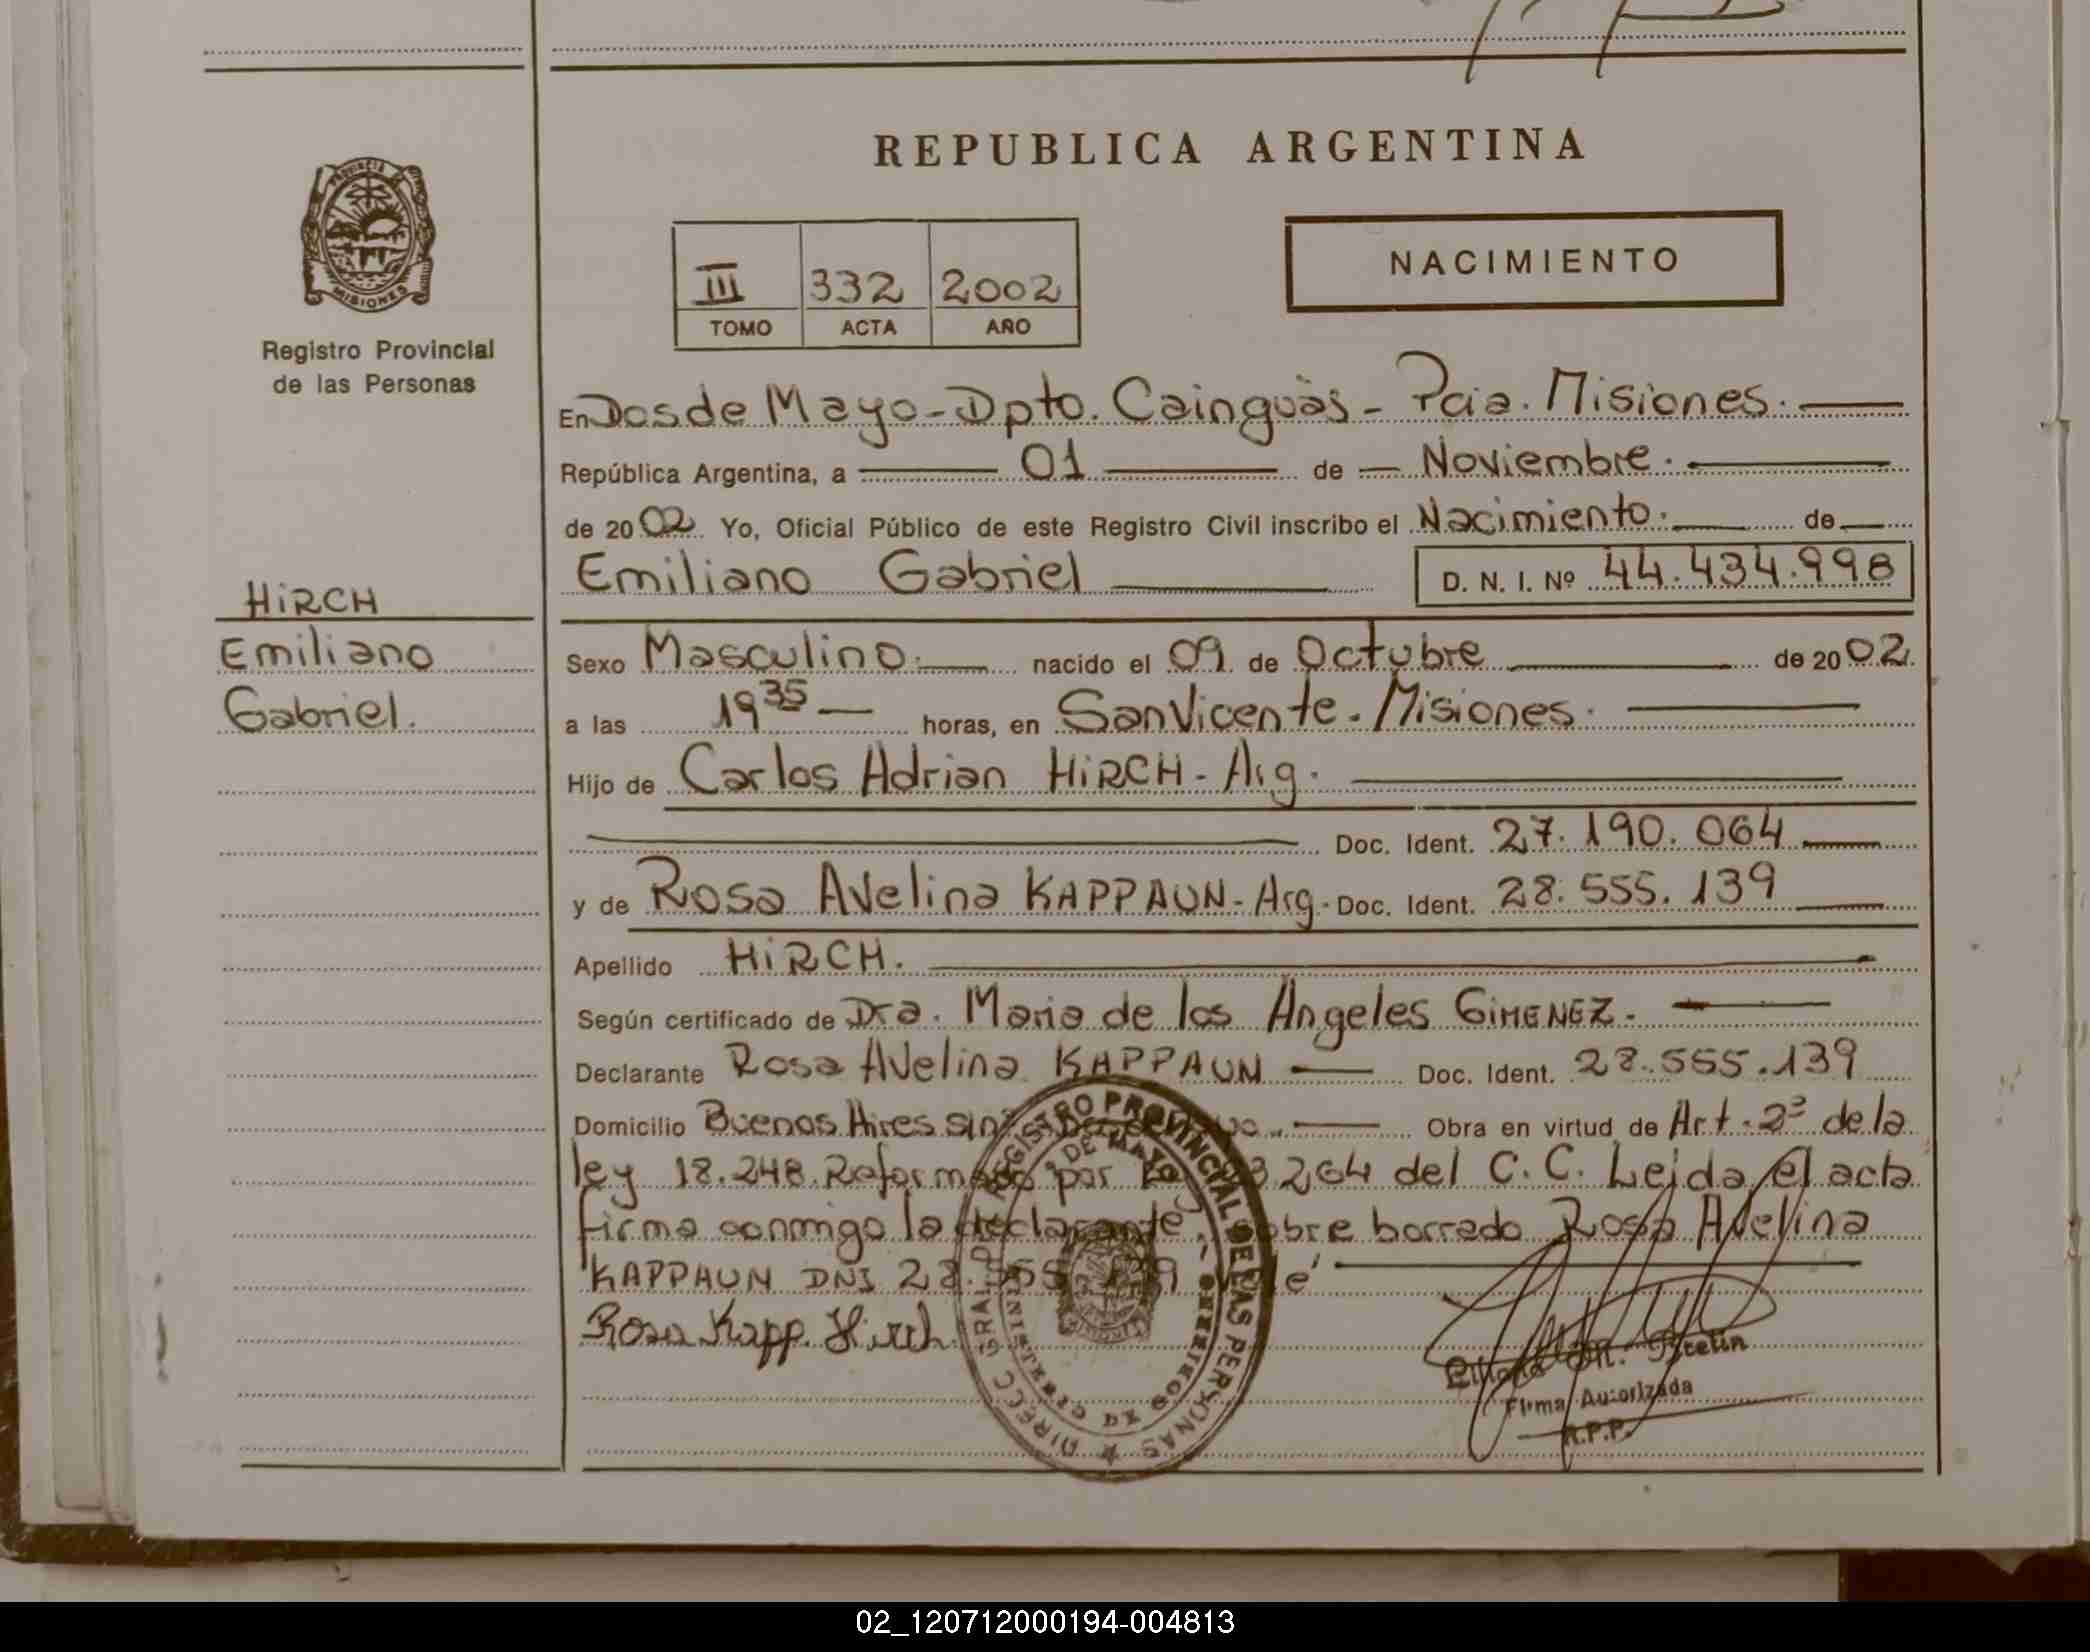 REPUBLICA ARGENTINA
PROVINCIA DE
MISIONES
Registro Provincial
de las Personas
III 332 2002
TOMO ACTA AÑO
NACIMIENTO
En Dos de Mayo - Dpto. Cainguàs - Pcia. Misiones.
República Argentina, a 01 de Noviembre.
de 2002 Yo, Oficial Público de este Registro Civil inscribo el Nacimiento. de
Emiliano Gabriel D. N. I. Nº 44.434.998
HiRCH
Emiliano
Gabriel.
Sexo Masculino. nacido el 09 de Octubre de 2002.
a las 19 35 horas, en San Vicente - Misiones.
Hijo de Carlos Adrian HiRCH - Arg.
Doc. Ident. 27.190.064
y de Rosa Avelina KAPPAUN - Arg. Doc. Ident. 28.555.139
Apellido HiRCH.
Según certificado de Dra. Maria de los Angeles GiMENEZ.
Declarante Rosa Avelina KAPPAUN Doc. Ident. 28.555.139
Domicilio Buenos Aires Obra en virtud de Art. 2º de la
ley 18.248 Reformado por 264 del C. C. Leida el acta
firma conmigo la declarante. Sobre borrado Rosa Avelina
KAPPAUN DNI 28.555.139
Rosa Kapp. Hirch.
DIRECC GRAL DE REGISTRO PROVINCIAL DE LAS PERSONAS
2 DE MAYO
MINISTERIO DE GOBIERNO
Firma Autorizada
R.P.P.
02_120712000194-004813